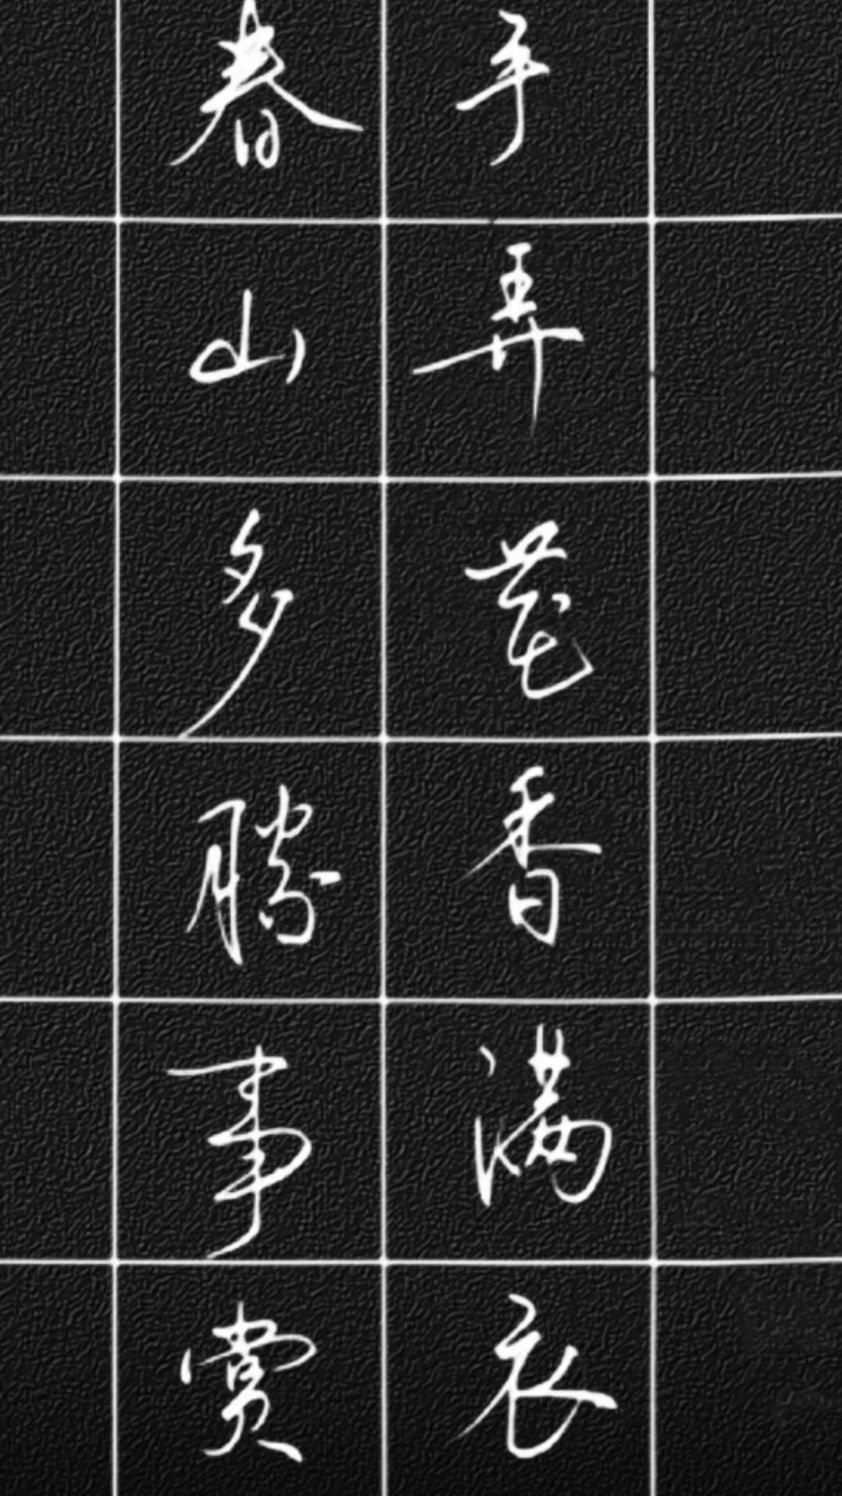 春山多勝事賞
手弄花香满衣